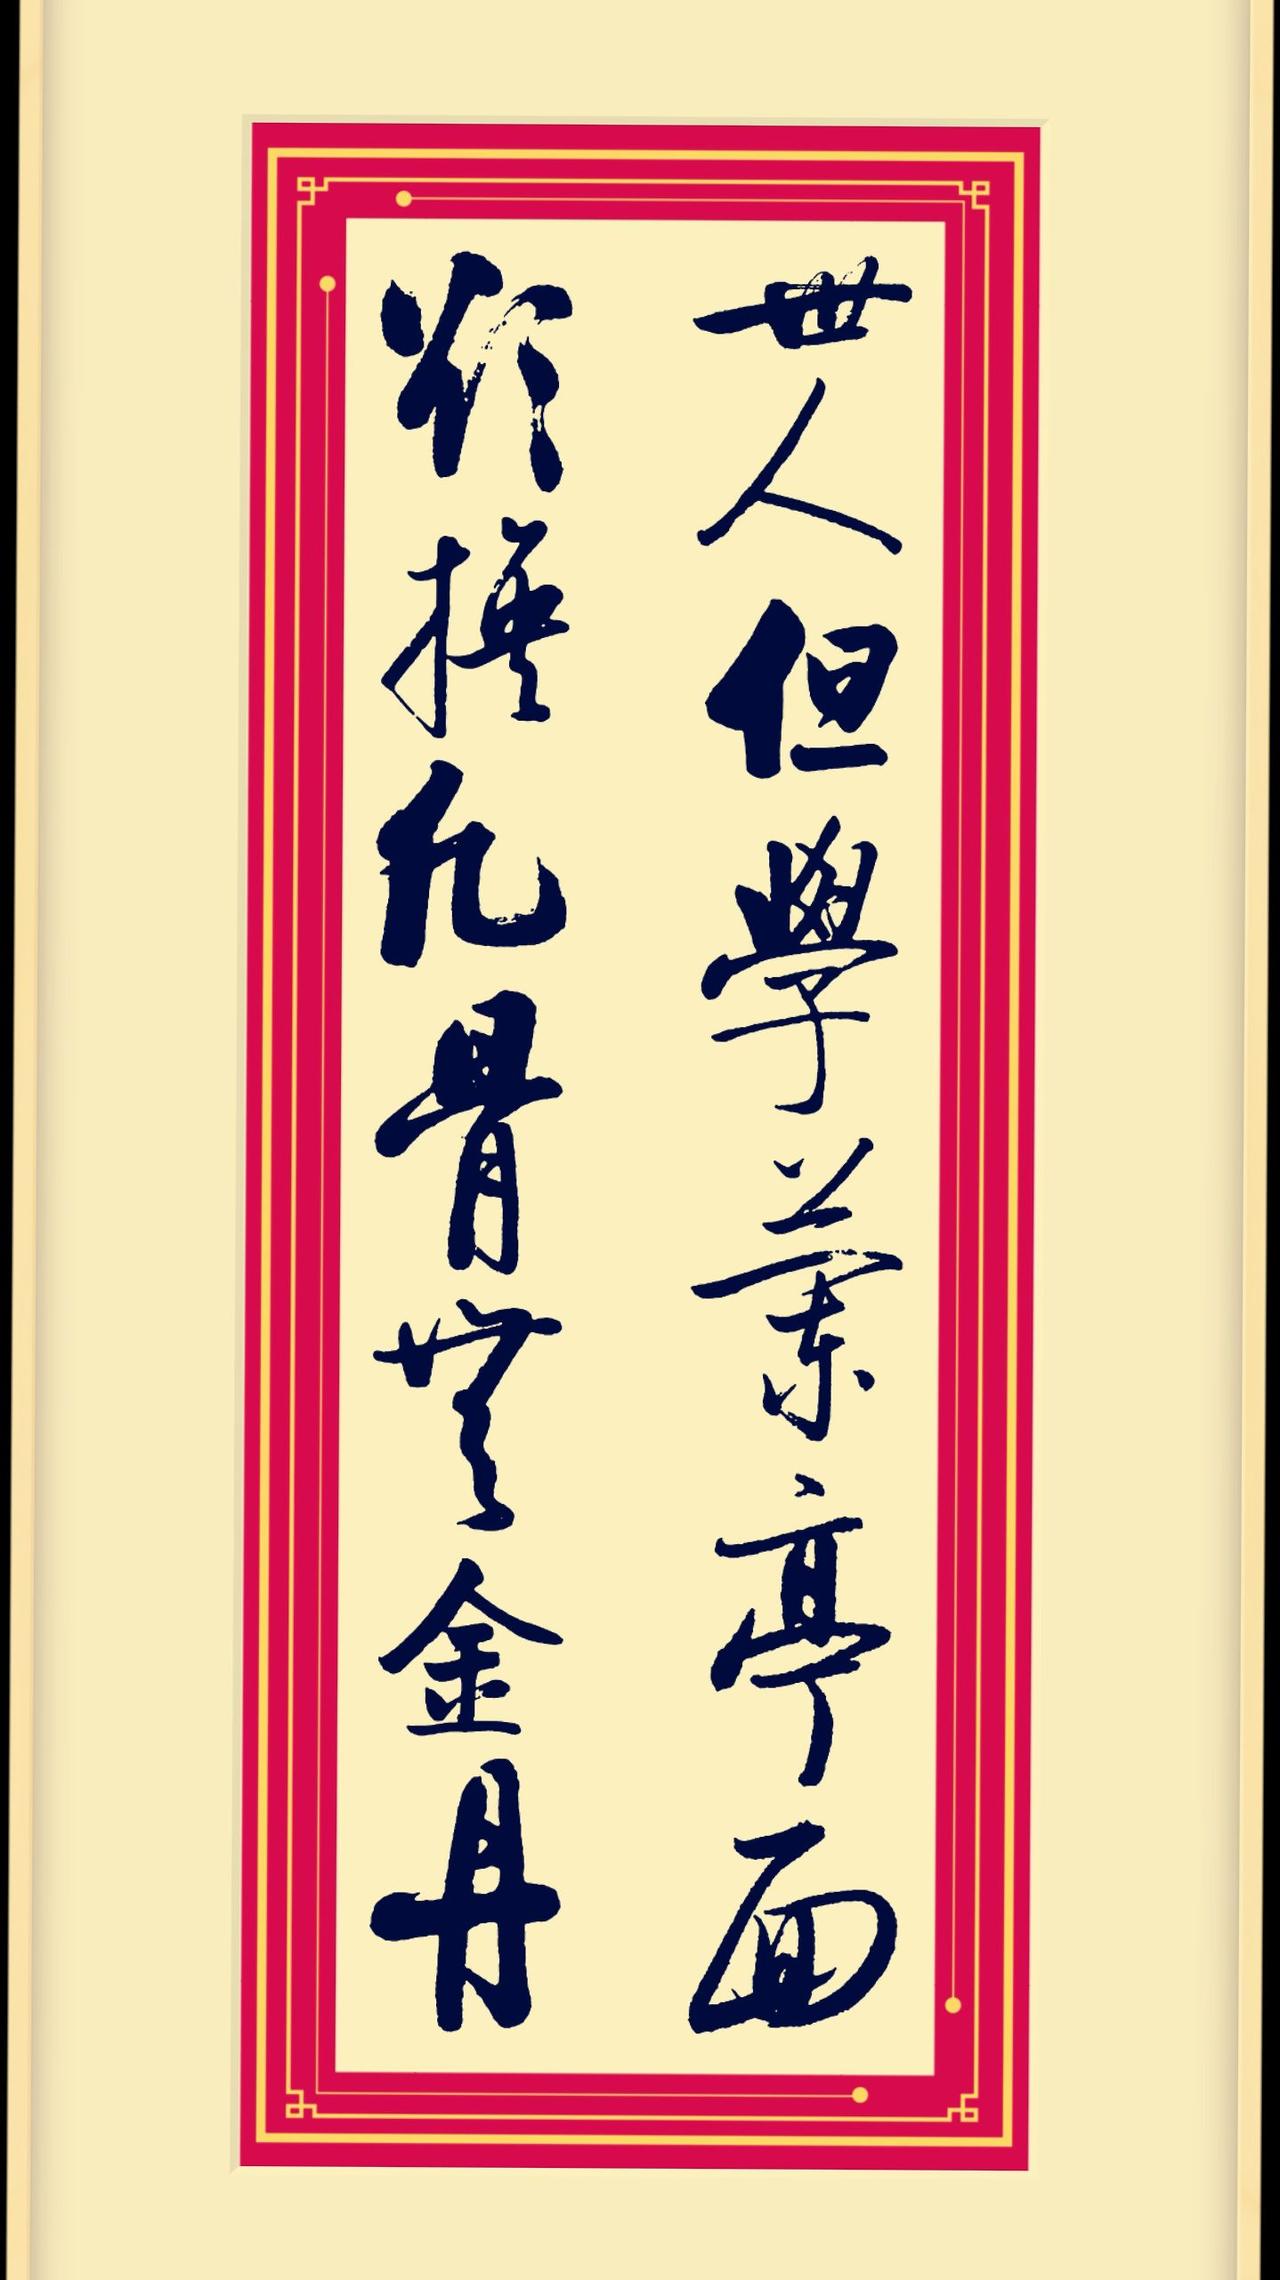 世人但學蘭亭面
欲換凡骨無金丹